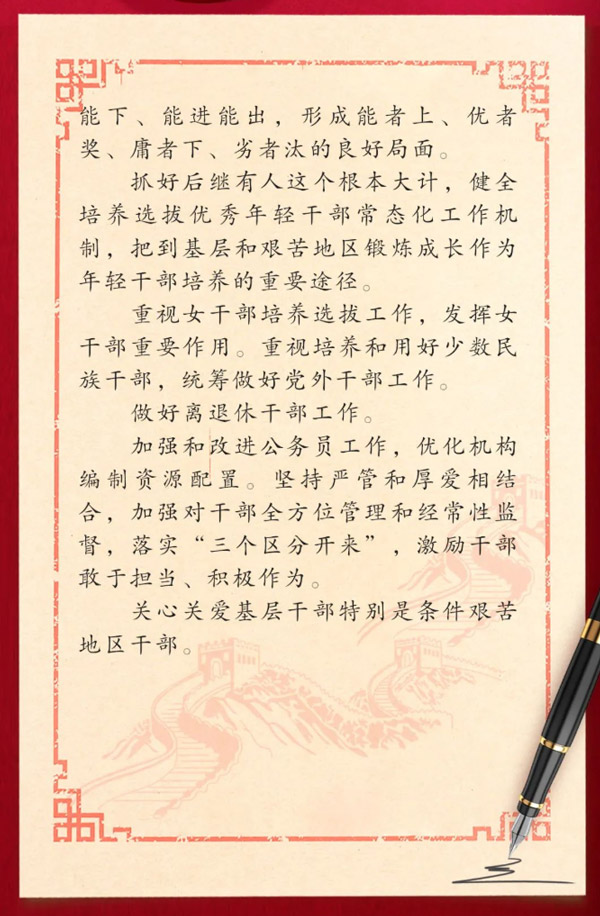 能下、能进能出，形成能者上、优者
奖、庸者下、劣者汰的良好局面。
抓好后继有人这个根本大计，健全
培养选拔优秀年轻干部常态化工作机
制，把到基层和艰苦地区锻炼成长作为
年轻干部培养的重要途径。
重视女干部培养选拔工作，发挥女
干部重要作用。重视培养和用好少数民
族干部，统筹做好党外干部工作。
做好离退休干部工作。
加强和改进公务员工作，优化机构
编制资源配置。坚持严管和厚爱相结
合，加强对干部全方位管理和经常性监
督，落实“三个区分开来”，激励干部
敢于担当、积极作为。
关心关爱基层干部特别是条件艰苦
地区干部。